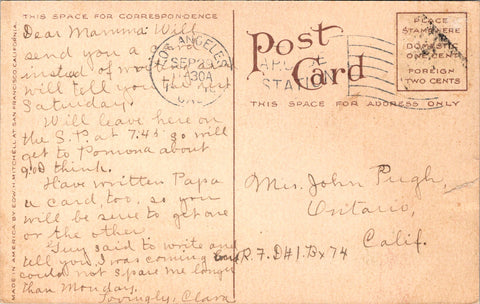 THIS SPACE FOR CORRESPONDENCE
Dear Mamma: Will
send you a
instead of
will tell you the rest
Saturday.
Will leave here on
the S.P. at 7:45 so will
get to Pomona about
9:00 think.
Have written Papa
a card, too, so you
will be sure to get one
or the other.
Guy said to write and
tell you I was coming but
could not spare me longer
than Monday.
Lovingly, Clara
MADE IN AMERICA BY EDWIN MITCHELL AT SAN FRANCISCO, CALIFORNIA.
LOS ANGELES
SEP 23
30A
CAL
Post Card
STA
THIS SPACE FOR ADDRESS ONLY
PLACE
STAMP HERE
DOMESTIC
ONE CENT
FOREIGN
TWO CENTS
Mrs. John Pugh,
Ontario,
Calif.
R. 7. D#1. Bx 74